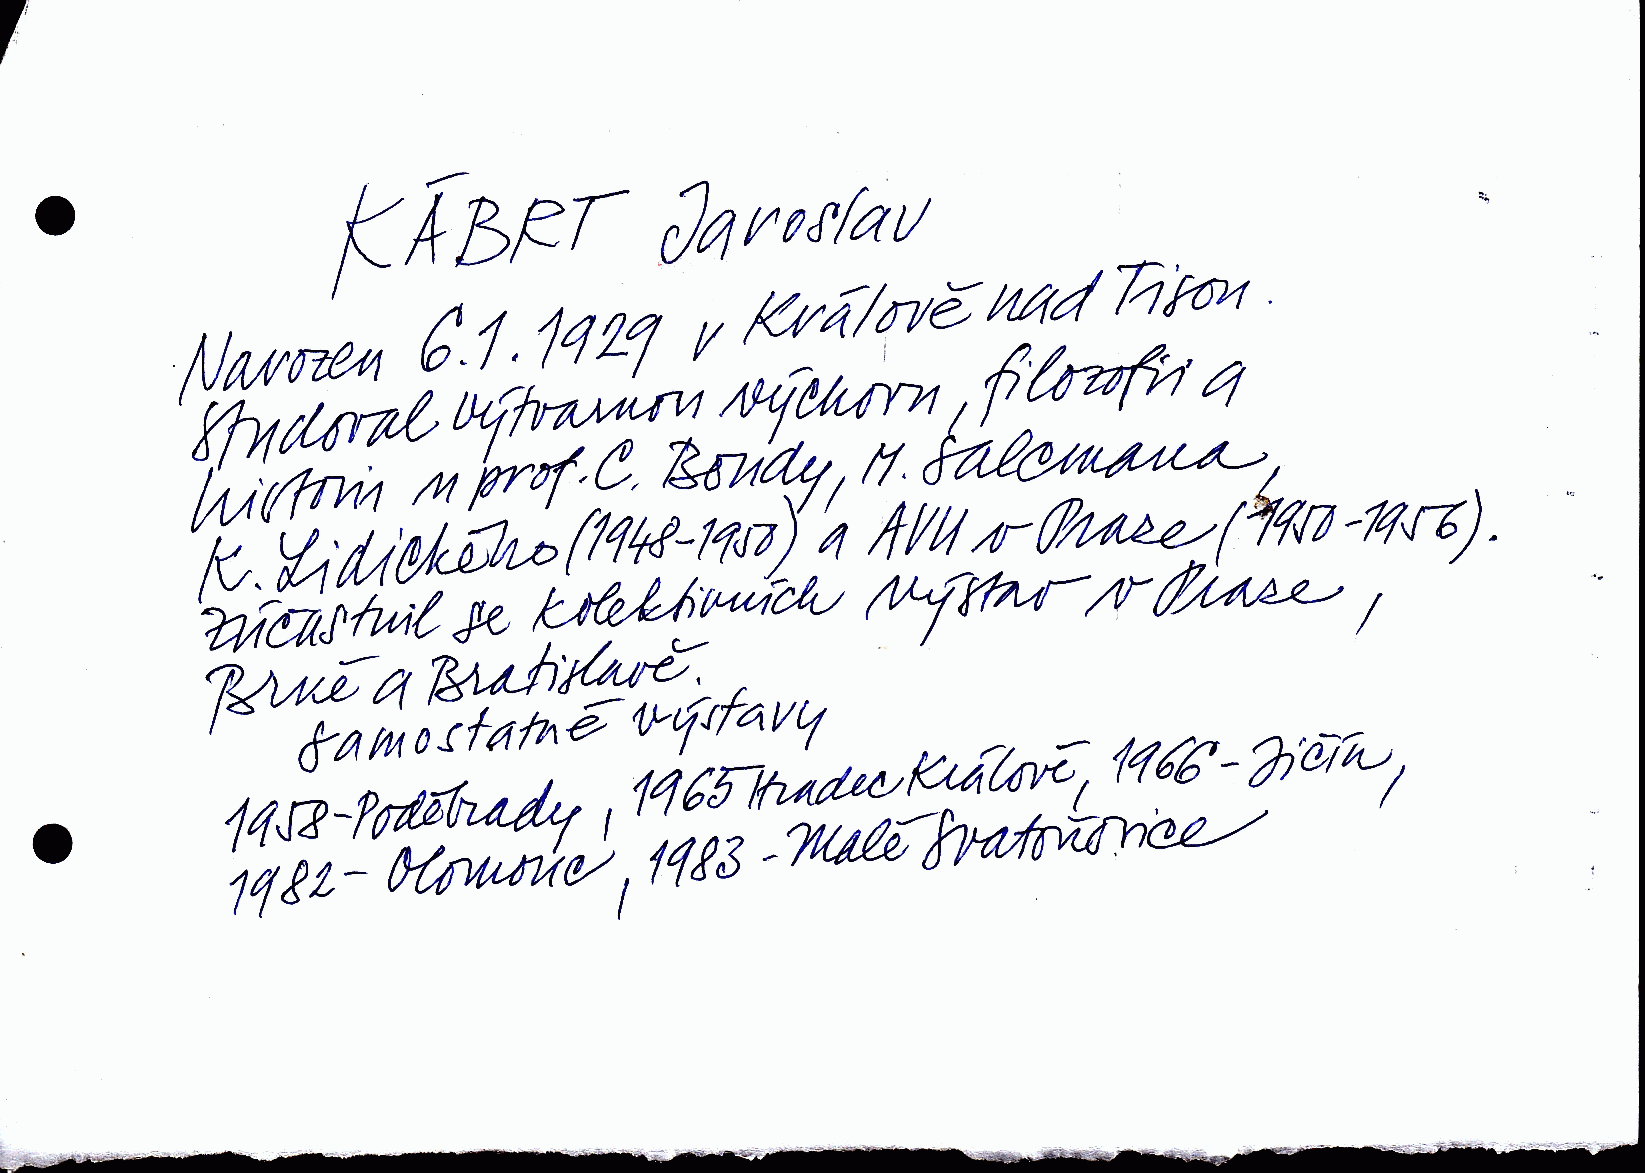 KÁBRT Jaroslav
Narozen 6.1.1929 v Králově nad Tisou.
Studoval výtvarnou výchovu, filozofii a
historii u prof. C. Boudy, M. Salcmana,
K. Lidického (1948-1950) a AVU v Praze (1950-1956).
Zúčastnil se kolektivních výstav v Praze,
Brně a Bratislavě.
Samostatné výstavy
1958-Poděbrady, 1965 Hradec Králové, 1966-Jičín,
1982-Olomouc, 1983-Malé Svatoňovice